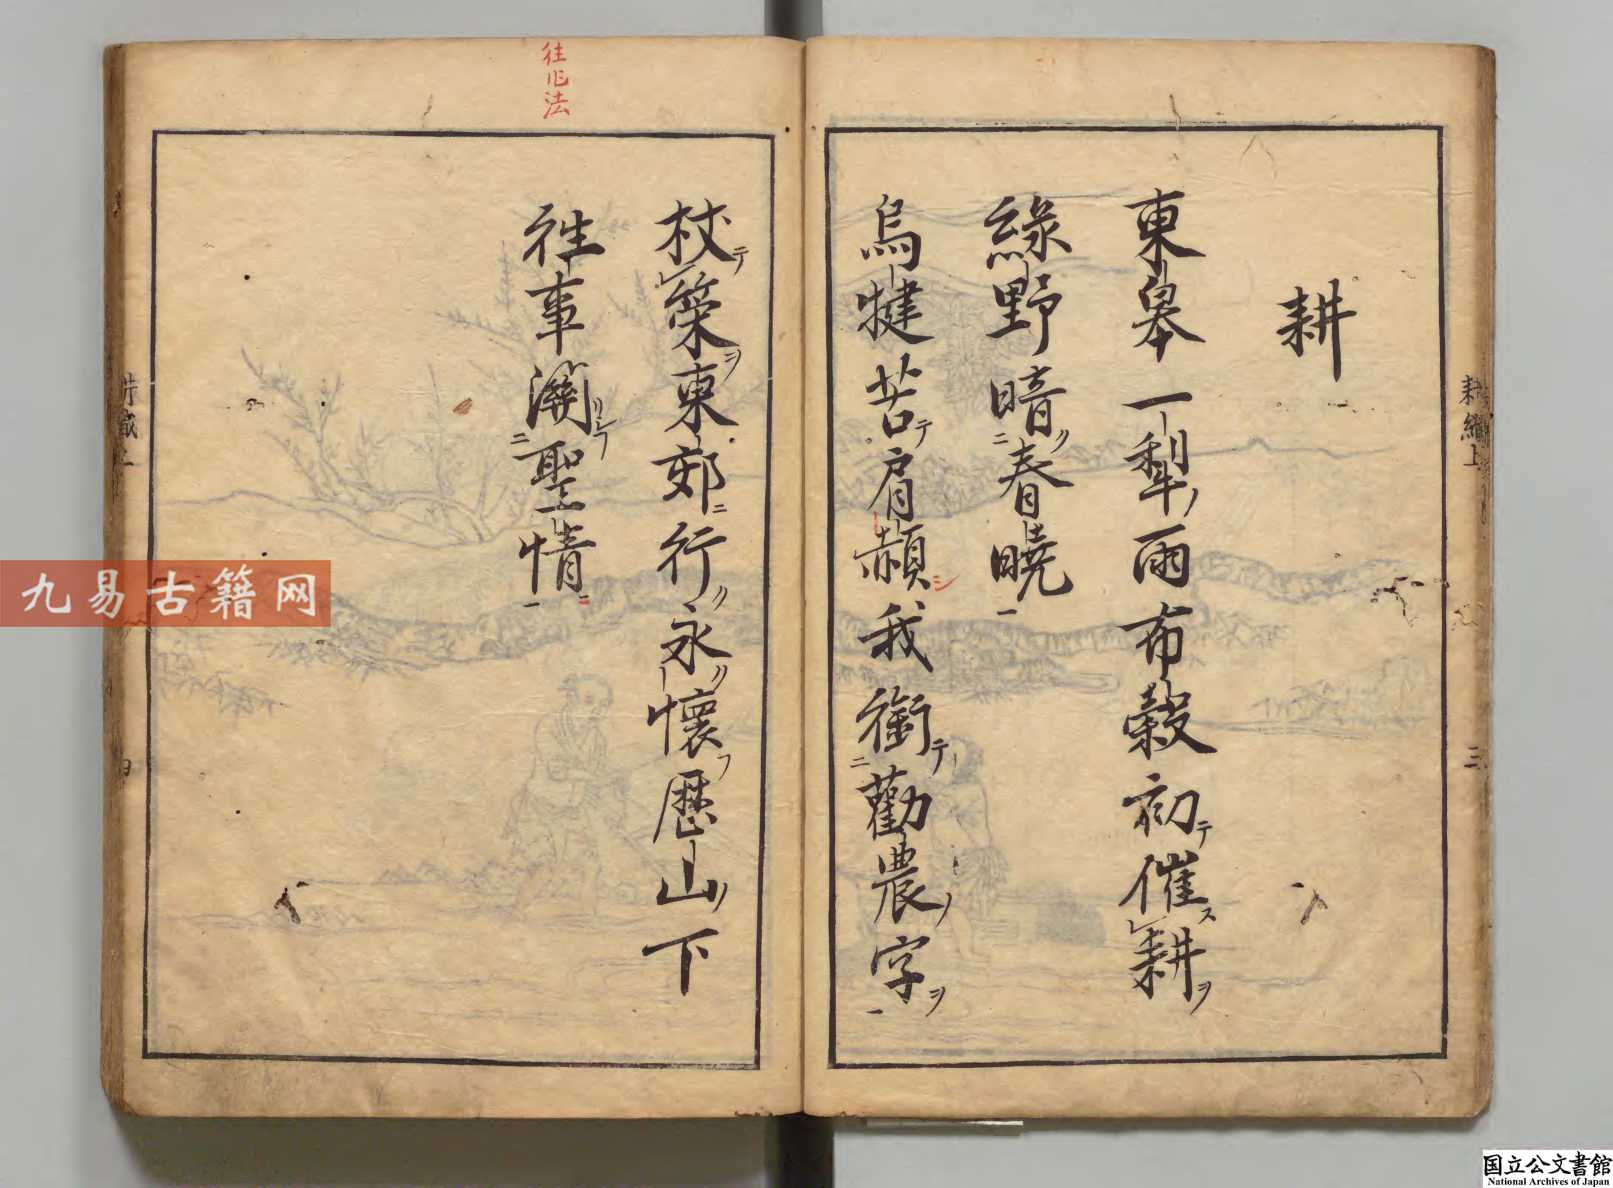 耕
東皋一犁雨布穀初催耕
綠野暗春曉
烏犍苦肩赬我銜勸農字
杖策東郊行永懷歷山下
往事關聖情
往作法
耕織上
三
九易古籍网
国立公文書館
National Archives of Japan